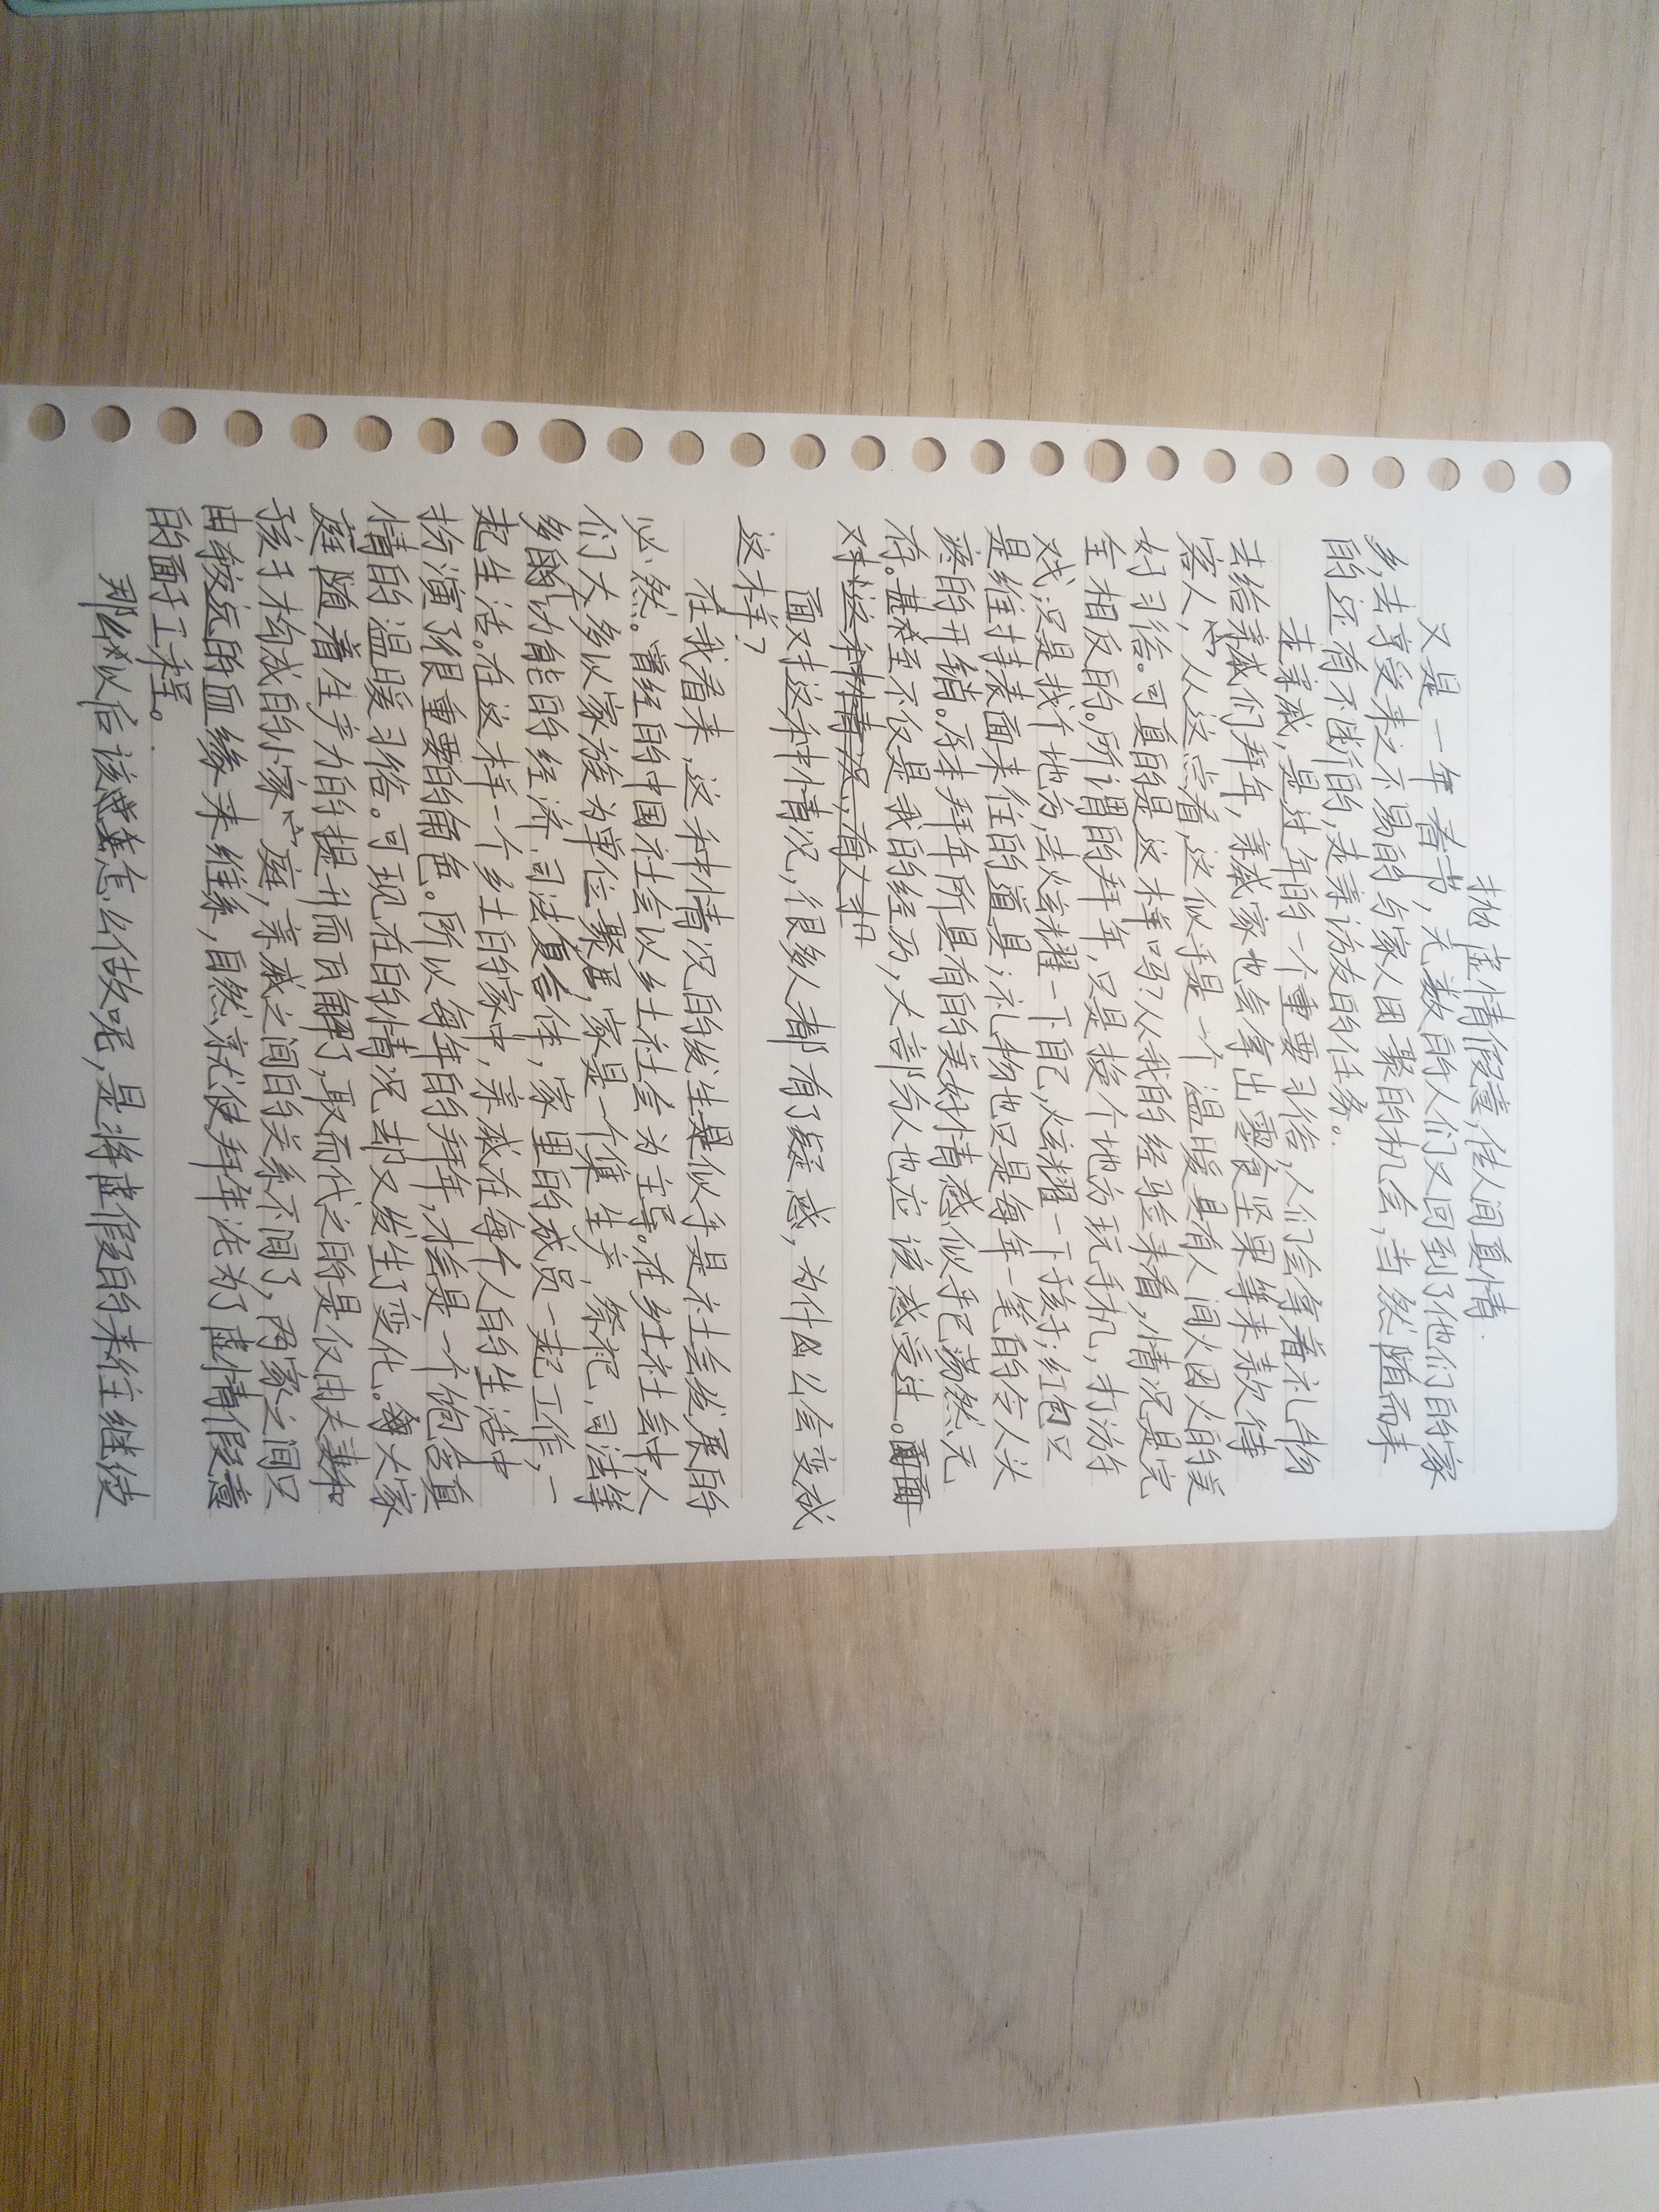 抛虚情假意,传人间真情.
又是一年春节,无数的人们又回到了他们的家
乡,去享受来之不易的与家人团聚的机会,当然随而来
的还有不断的,走亲访友的任务。
走亲戚,是过年的一个重要习俗,人们会拿着礼物
去给亲戚们拜年,亲戚家也会拿出零食坚果等来款待
客人,从这点看,这似乎是一个温暖具有人间火因火的美
好习俗。可真的是这样吗?从我的经验来看,情况是完
全相反的。所谓的拜年,只是换个地方玩手机,打游
戏,只是找个地方,去炫耀一下自己,炫耀一下孩子;红包只
是维持表面来往的道具;礼物也只是每年一笔的令人头
疼的开销。原本拜年所具有的美好情感似乎已荡然无
存。甚至不仅是我的经历,大部分人也应该感受过。
对这种情况,有人才
面对这种情况,很多人都有了疑惑,为什么会变成
这样?
在我看来,这种情况的发生是似乎是社会发展的
必然。曾经的中国社会以乡土社会为主导。在乡土社会中,人
们大多以家族为单位聚居,家是一个集生产,祭祀,司法等
多功能的经济、司法复合体,家里的成员一起工作,一
起生活。在这样一个乡土的家中,亲戚在每个人的生活中
扮演了很重要的角色。所以每年的拜年,才会是一个饱含真
情的温暖习俗。可现在的情况却又发生了变化。大家
庭随着生产力的提升而瓦解了,取而代之的是仅由夫妻和
孩子构成的小家庭,亲戚之间的关系不间了,两家之间只
由较远的血缘来维系,自然就使拜年沦为了虚情假意
的面子工程。
那么以后该怎么做呢,是将虚假的来往继续